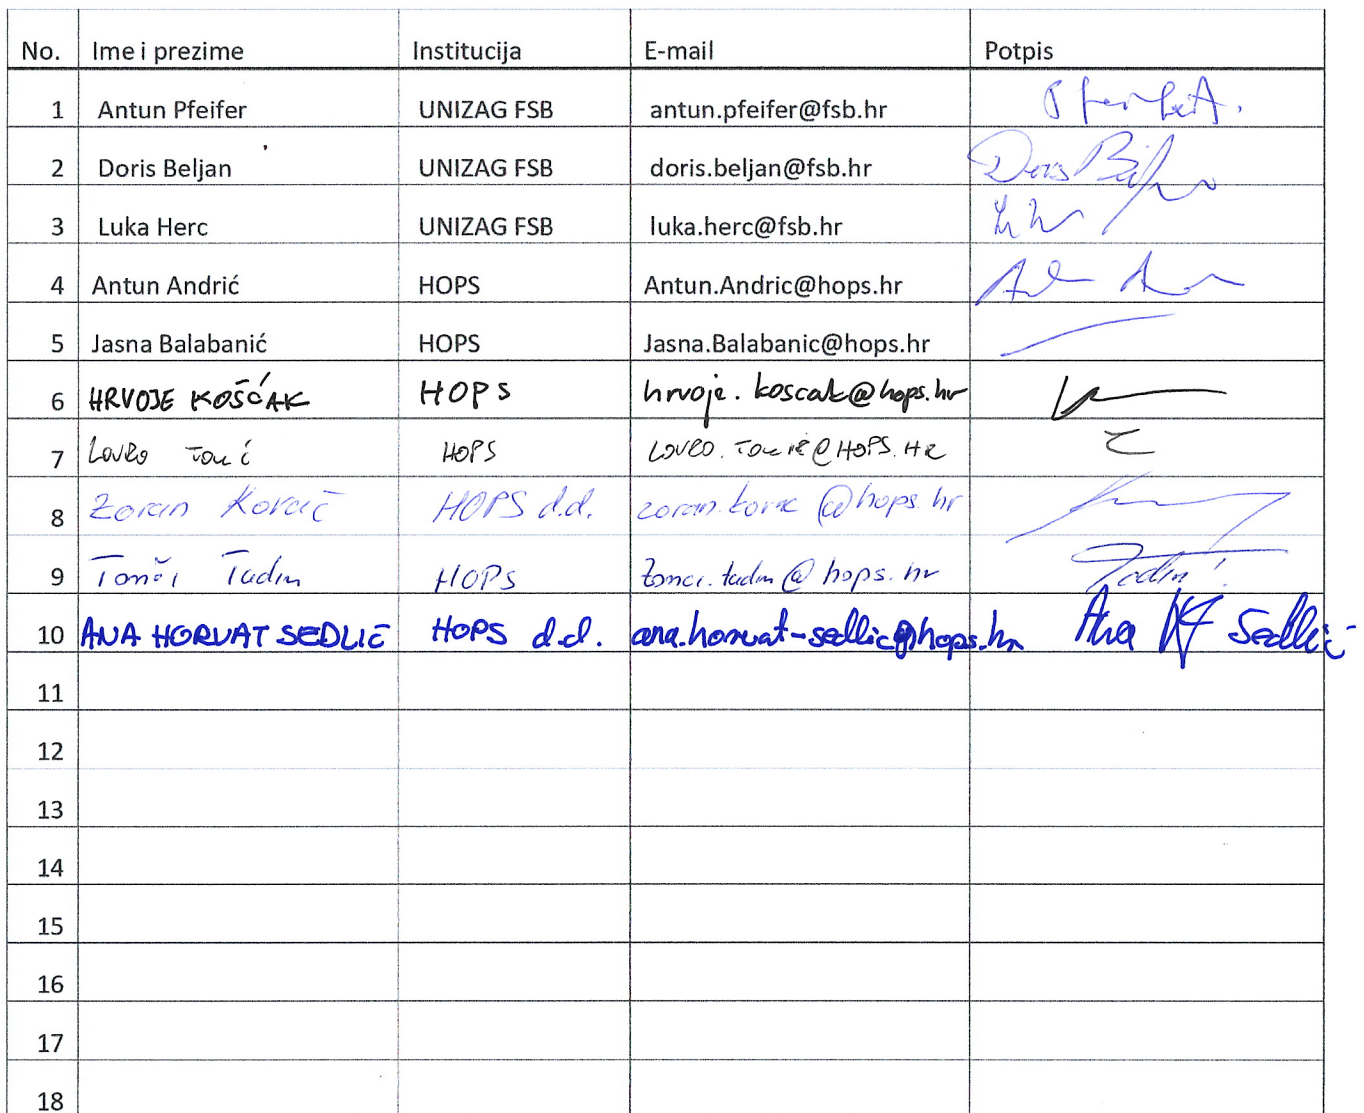 No. Ime i prezime Institucija E-mail Potpis
1 Antun Pfeifer UNIZAG FSB antun.pfeifer@fsb.hr
2 Doris Beljan UNIZAG FSB doris.beljan@fsb.hr Doris
3 Luka Herc UNIZAG FSB luka.herc@fsb.hr
4 Antun Andrić HOPS Antun.Andric@hops.hr
5 Jasna Balabanić HOPS Jasna.Balabanic@hops.hr
6 HRVOJE KOŠĆAK HOPS hrvoje.koscak@hops.hr
7 LOVRO HOPS
8 Zoran Kovačić HOPS d.d.
9 Tonči Tadin HOPS tonci.tadin@hops.hr Tadin
10 ANA HORVAT SEDLIĆ HOPS d.d. ana.horvat-sedlic@hops.hr Ana Sedlić
11
12
13
14
15
16
17
18